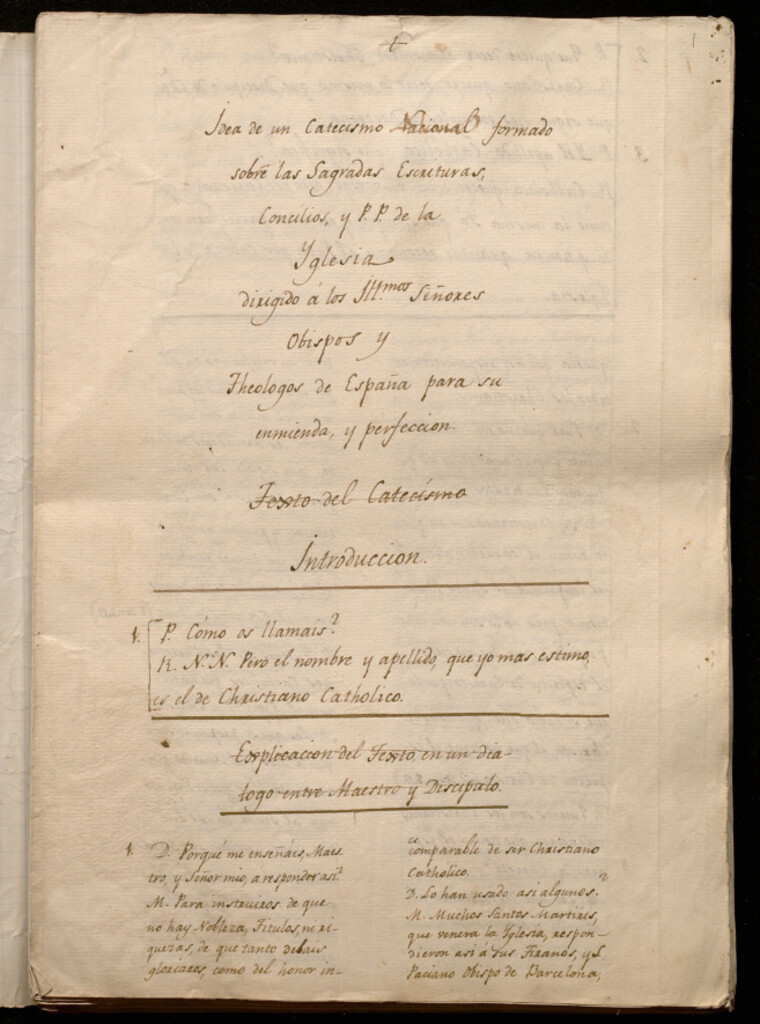 +
1
Idea de un Catecismo Nacional formado
sobre las Sagradas Escrituras,
Concilios, y P.P. de la
Yglesia
dirigido á los Ill.mos Señores
Obispos y
Theologos de España para su
enmienda, y perfeccion.
Texto del Catecismo
Introduccion.
1. P. Cómo os llamais?
R. N.N. Pero el nombre y apellido, que yo mas estimo,
es el de Christiano Catholico.
Explicacion del Texto en un dia-
logo entre Maestro y Discipulo.
1. D. Porqué me enseñais, Maes-
tro, y Señor mio, a responder asi?
M. Para instruiros de que
no hay Nobleza, Titulos, ni ri-
quezas, de que tanto debais
gloriaros, como del honor in-
comparable de ser Christiano
Catholico.
D. Lo han usado asi algunos?
M. Muchos Santos Martires,
que venera la Yglesia, respon-
dieron asi á sus Tiranos, y S.
Paciano Obispo de Barcelona,